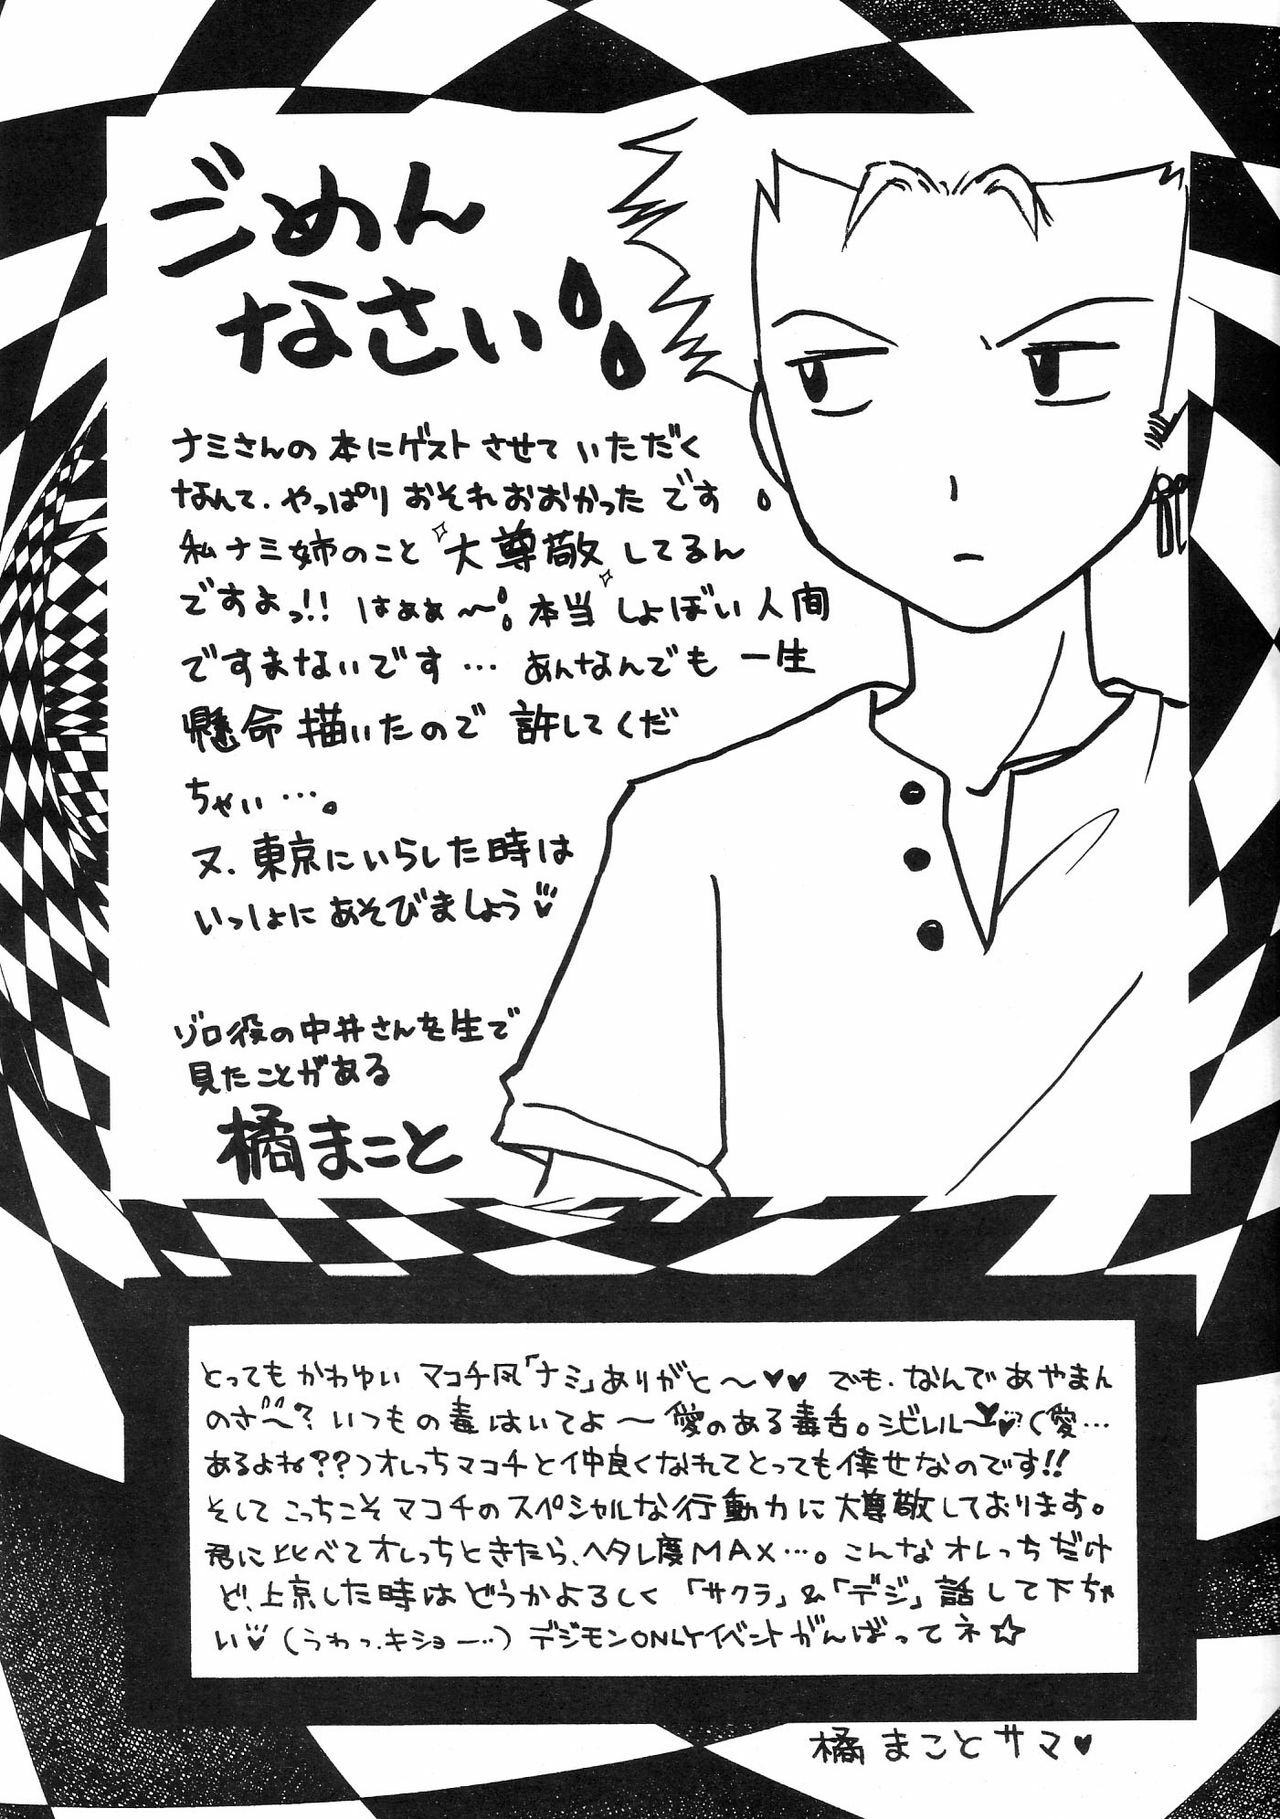 ごめん
なさい
ナミさんの本にゲストさせていただく
なんて、やっぱりおそれおおかったです
私ナミ姉のこと大尊敬してるん
ですよっ!!はぁぁ〜。本当しょぼい人間
ですまないです…あんなんでも一生
懸命描いたので許してくだ
ちゃい…。
又、東京にいらした時は
いっしょにあそびましょう♥
ゾロ役の中井さんを生で
見たことがある
橘まこと
とってもかわゆいマコチ風「ナミ」ありがと〜♥♥でも、なんであやまん
のさ〜?いつもの毒はいてよ〜愛のある毒舌。シビレル〜♥?(愛…
あるよね??)オレっちマコチと仲良くなれてとっても倖せなのです!!
そしてこっちこそマコチのスペシャルな行動力に大尊敬しております。
君に比べてオレっちときたら、ヘタレ度MAX…。こんなオレっちだけ
ど、上京した時はどうかよろしく「サクラ」&「デジ」話して下ちゃ
い♥(うわっ、キショー…)デジモンONLYイベントがんばってネ☆
橘まことサマ♥